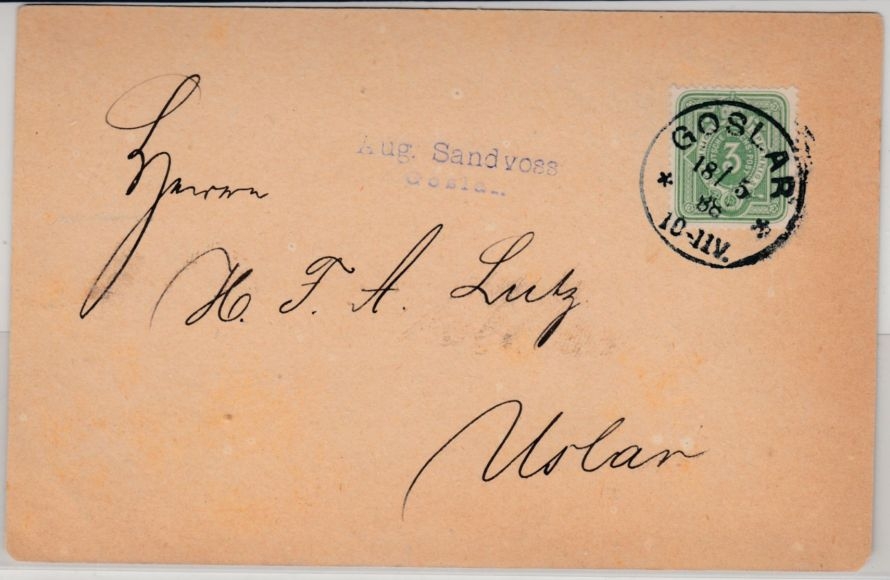 Aug. Sandvoss
Goslar
GOSLAR
18/5
88
10-11V.
3
Herrn
H. F. A. Lutz
Uslar